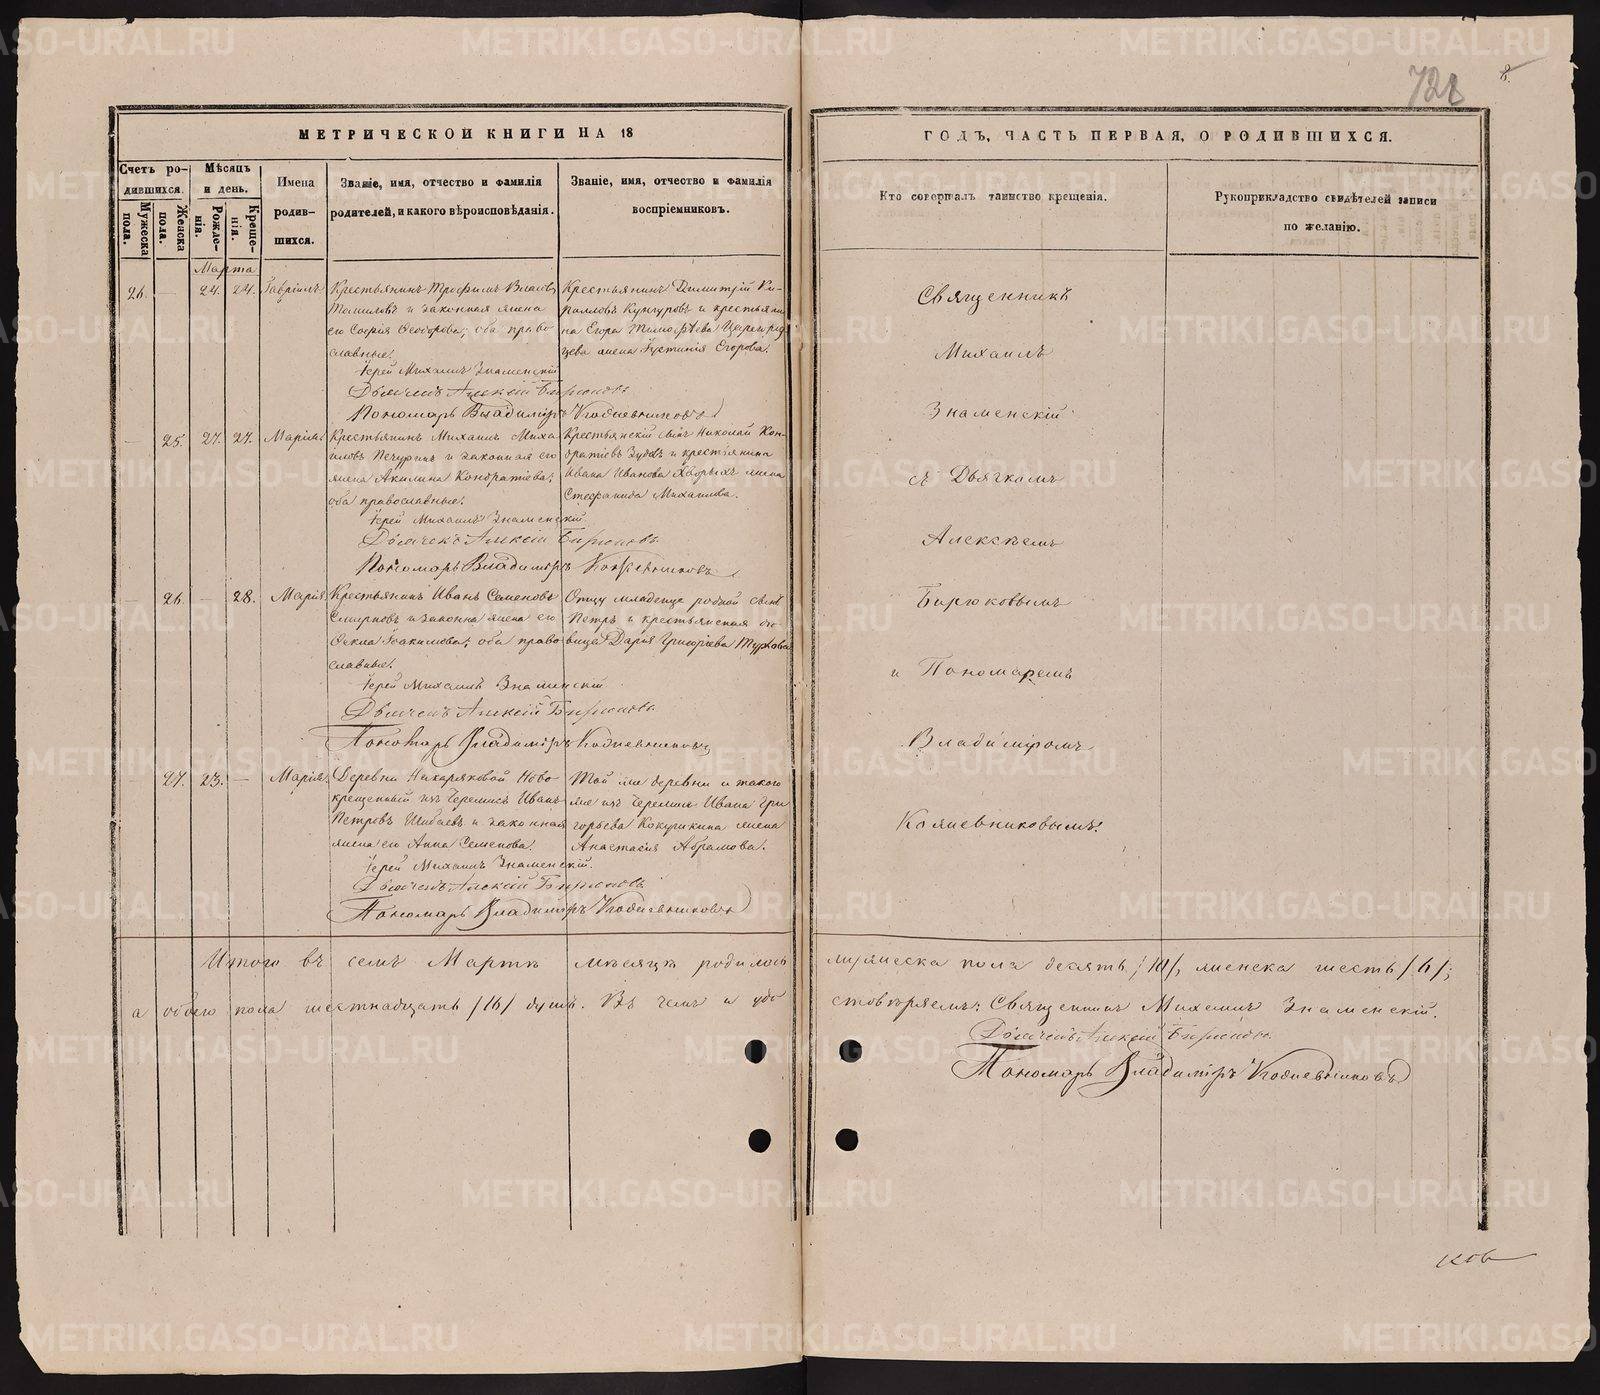 728
8.
МЕТРИЧЕСКОЙ КНИГИ НА 18
ГОДЪ, ЧАСТЬ ПЕРВАЯ, О РОДИВШИХСЯ.
Счетъ родившихся.
Мужеска пола.
Женска пола.
Мѣсяцъ и день.
Рожденія.
Крещенія.
Имена родившихся.
Званіе, имя, отчество и фамилія родителей, и какого вѣроисповѣданія.
Званіе, имя, отчество и фамилія воспріемниковъ.
Кто совершалъ таинство крещенія.
Рукоприкладство свидѣтелей записи по желанію.
Марта
26. — 24. 24. Гавріилъ
Крестьянинъ Трофимъ Власовъ
Томиловъ и законная жена
его Софія Ѳеодорова; оба право-
славные.
Крестьянинъ Димитрій Ки-
рилловъ Кунгуровъ и крестьяни-
на Егора Тимоѳѣева
жена Іустинія Егорова.
Іерей Михаилъ Знаменскій
Дьячекъ Алексій Бирюковъ
Пономарь Владиміръ Кожевниковъ
— 25. 27. 27. Марія.
Крестьянинъ Михаилъ Миха-
иловъ Печуринъ и законная его
жена Акилина Кондратіева;
оба православные.
Крестьянскій сынъ Николай Кон-
дратіевъ Зуевъ и крестьянина
Ивана Иванова Хворыхъ жена
Стефанида Михаилова.
Іерей Михаилъ Знаменскій
Дьячекъ Алексій Бирюковъ
Пономарь Владиміръ Кожевниковъ
— 26. — 28. Марія.
Крестьянинъ Иванъ Семеновъ
Смирновъ и законна жена его
Ѳекла Іоакимова; оба право-
славные.
Отцу младенца родной сынъ
Петръ и крестьянская дѣ-
вица Дарія Григоріева
Іерей Михаилъ Знаменскій
Дьячекъ Алексій Бирюковъ
Пономарь Владиміръ Кожевниковъ
— 27. 23. — Марія.
Деревни Ново-
крещенный изъ Черемисъ Иванъ
Петровъ Шибаевъ и законная
жена его Анна Семенова.
Той же деревни и такого
же изъ Черемисъ Ивана Гри-
горьева Кокушкина жена
Анастасія Абрамова.
Іерей Михаилъ Знаменскій.
Дьячекъ Алексій Бирюковъ
Пономарь Владиміръ Кожевниковъ
Священникъ
Михаилъ
Знаменскій
съ Дьячкомъ
Алексѣемъ
Бирюковымъ
и Пономаремъ
Владиміромъ
Кожевниковымъ.
Итого въ семъ Мартѣ мѣсяцѣ родилось мужеска пола десять /10/, женска шесть /6/;
а обоего пола шестнадцать /16/ душъ. Въ чемъ и удо-стовѣряемъ: Священникъ Михаилъ Знаменскій.
Дьячекъ Алексій Бирюковъ
Пономарь Владиміръ Кожевниковъ
ков
METRIKI.GASO-URAL.RU